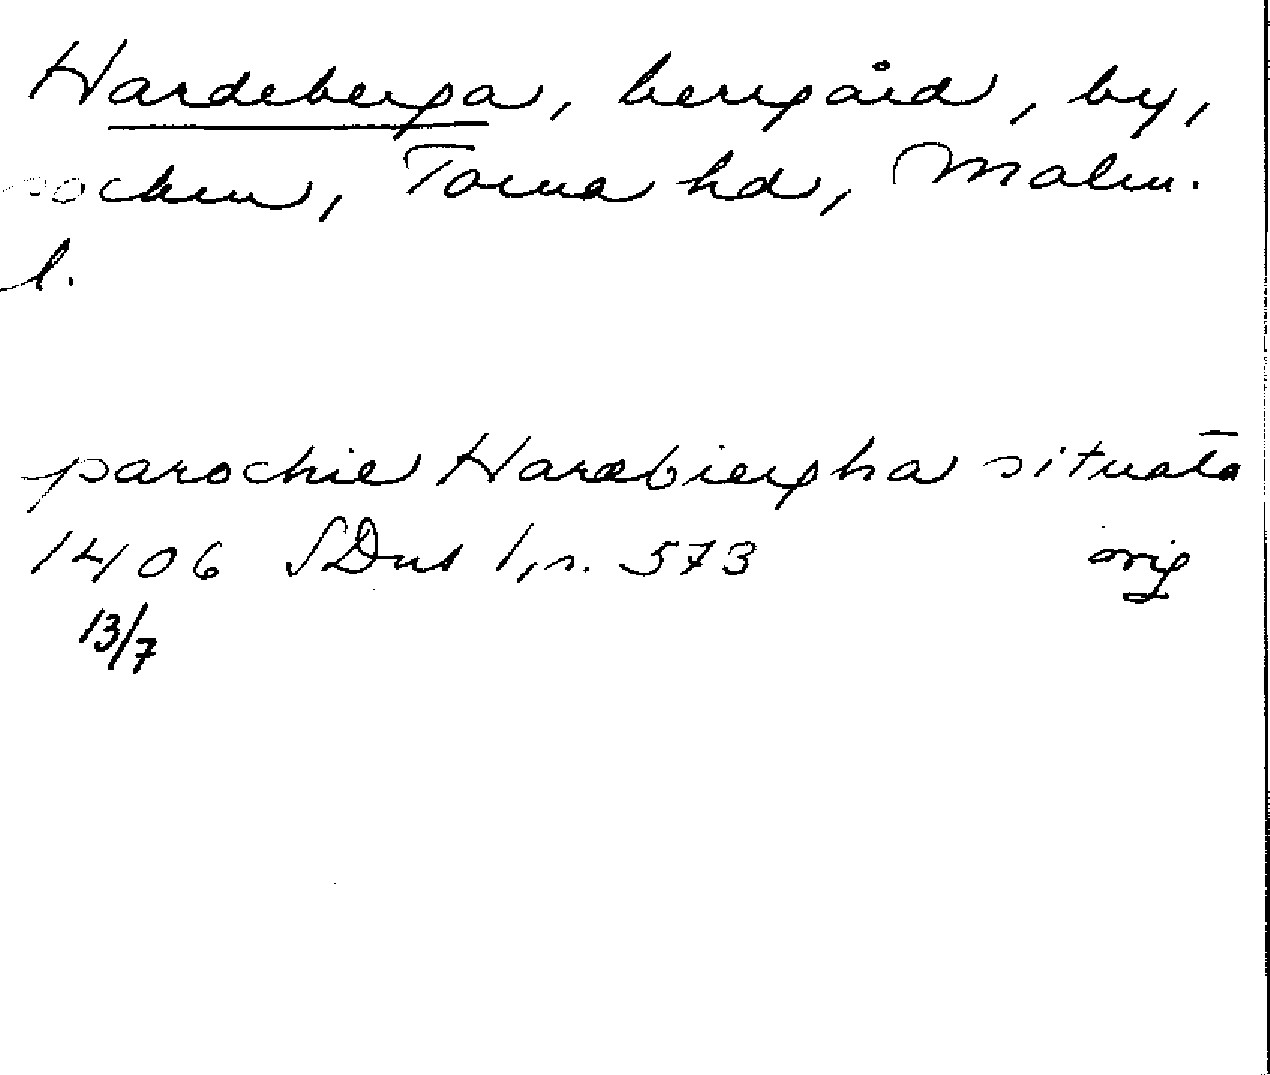 Hardeberga, herrgård, by,
socken, Torna hd, Malm.
l.
parochie Haræbiergha situatā
1406 SDns 1, s. 573 orig
13/7